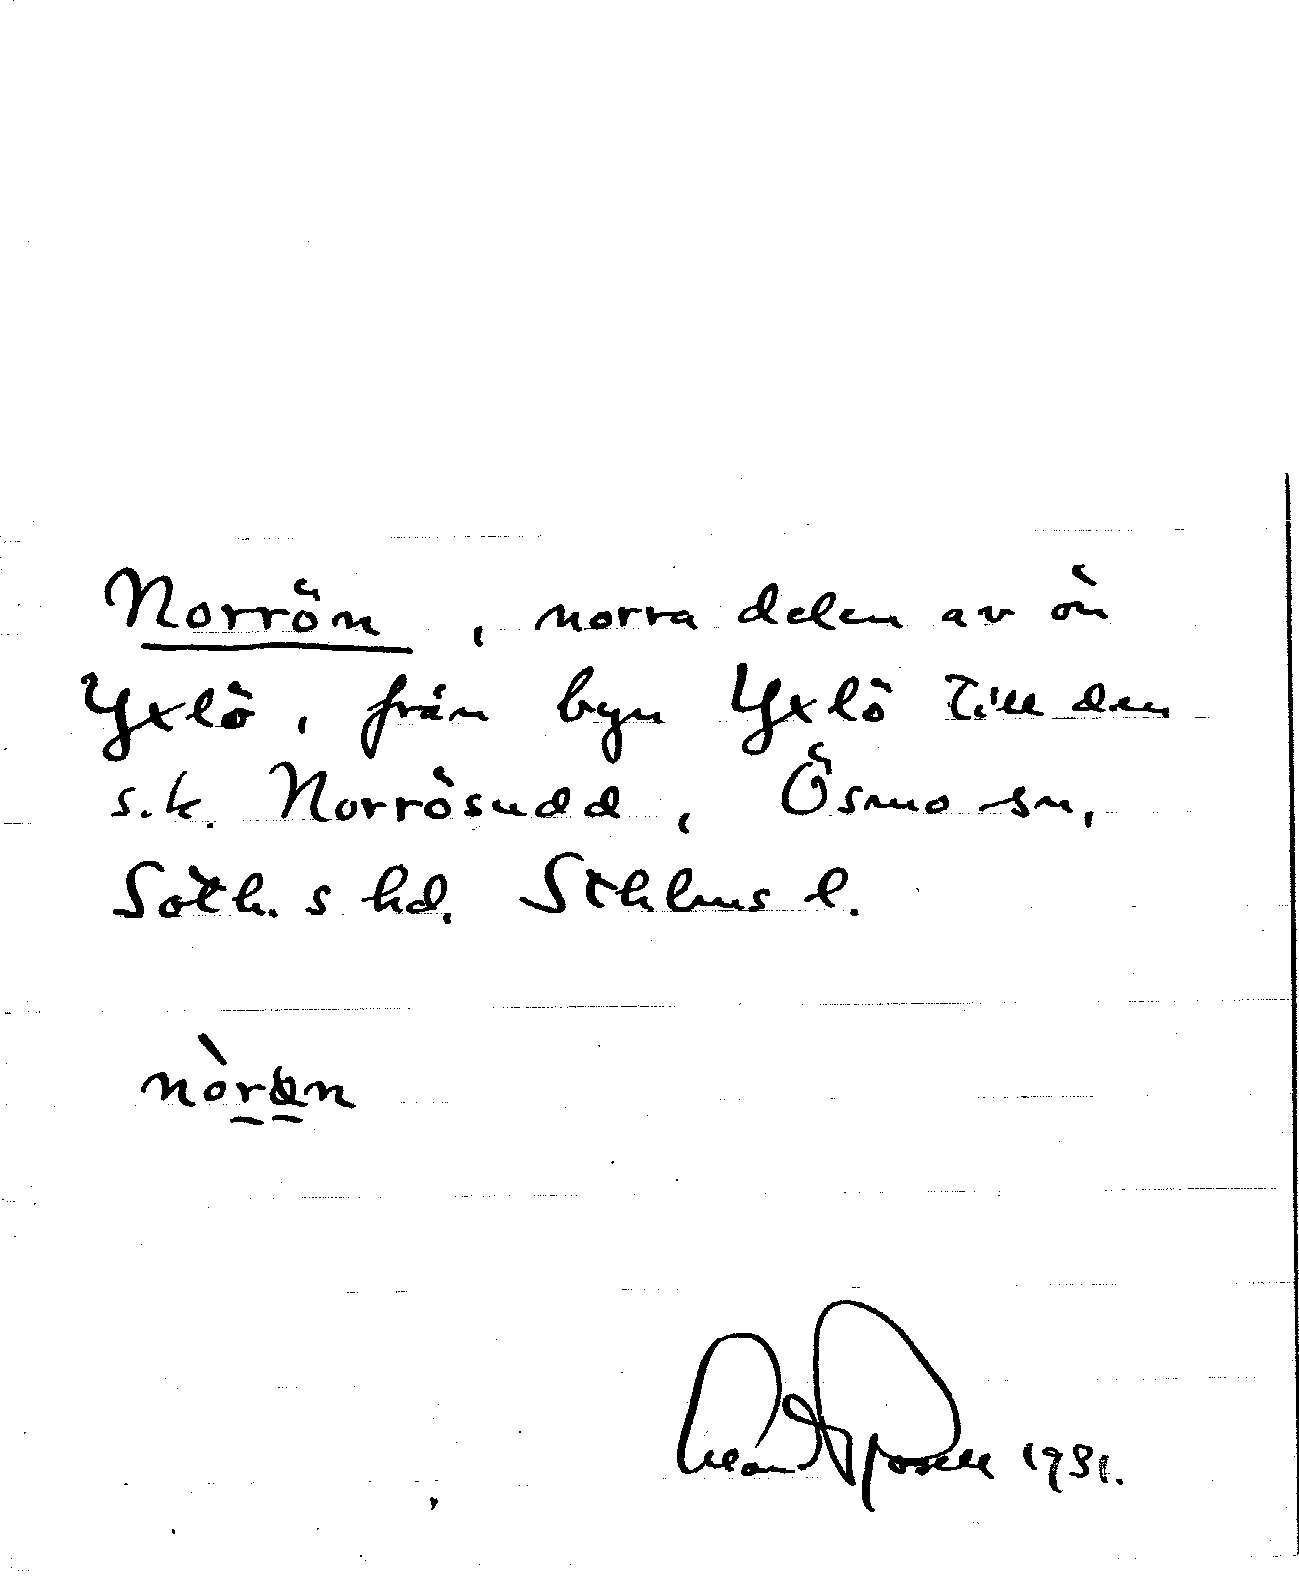 Norrön, norra delen av ön
Yxlö, från byn Yxlö till den
s.k. Norrösudd, Ösmo sn,
Soth. s hd. Sthlms l.
nòrøn
1931.